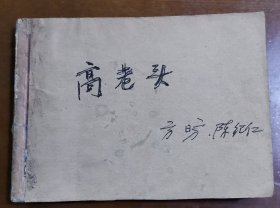 高老头
方昉、陈纪仁